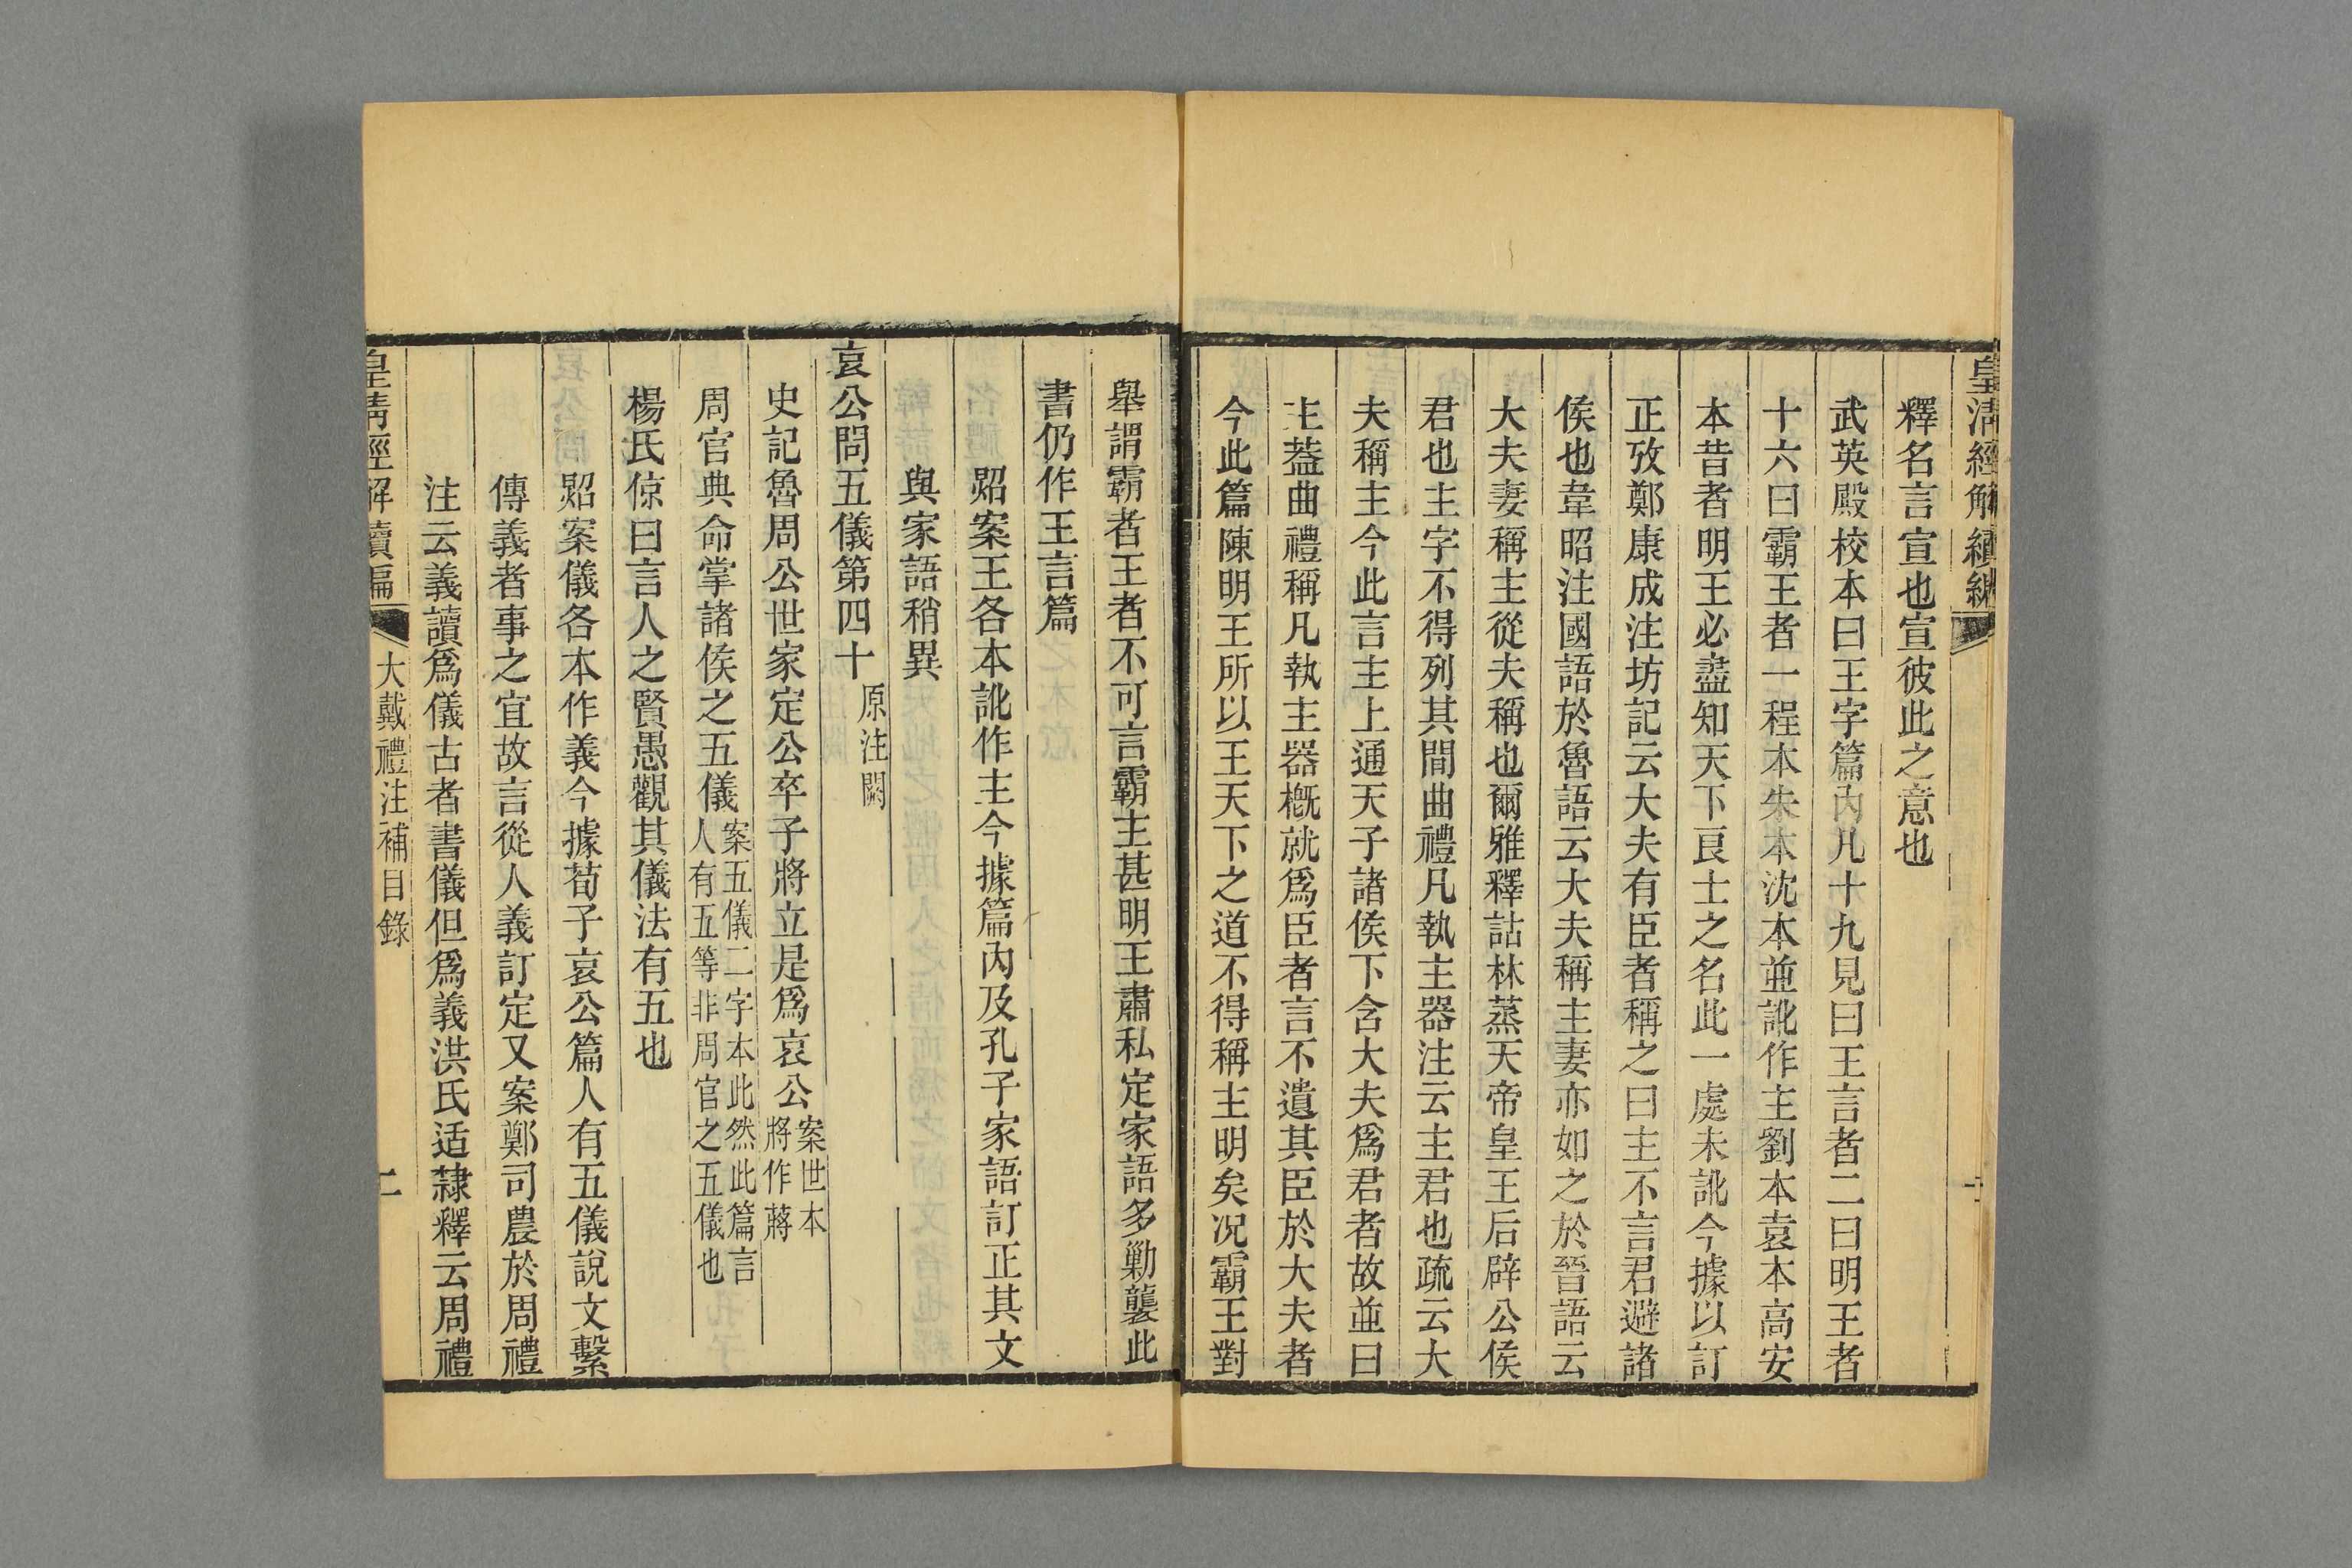 皇清經解續編
釋名言宣也宣彼此之意也
武英殿校本曰王字篇內凡十九見曰王言者二曰明王者
十六曰霸王者一程本朱本沈本並訛作主劉本袁本高安
本昔者明王必盡知天下良士之名此一處未訛今據以訂
正攷鄭康成注坊記云大夫有臣者稱之曰主不言君避諸
侯也韋昭注國語於魯語云大夫稱主妻亦如之於晉語云
大夫妻稱主從夫稱也爾雅釋詁林蒸天帝皇王后辟公侯
君也主字不得列其間曲禮凡執主器注云主君也疏云大
夫稱主今此言主上通天子諸侯下含大夫爲君者故並曰
主葢曲禮稱凡執主器槪就爲臣者言不遺其臣於大夫者
今此篇陳明王所以王天下之道不得稱主明矣況霸王對
舉謂霸者王者不可言霸主甚明王肅私定家語多勦襲此
書仍作王言篇
照案王各本訛作主今據篇內及孔子家語訂正其文
與家語稍異
哀公問五儀第四十原注闕
史記魯周公世家定公卒子將立是爲哀公案世本將作蔣
周官典命掌諸侯之五儀案五儀二字本此然此篇言人有五等非周官之五儀也
楊氏倞曰言人之賢愚觀其儀法有五也
照案儀各本作義今據荀子哀公篇人有五儀說文繫
傳義者事之宜故言從人義訂定又案鄭司農於周禮
注云義讀爲儀古者書儀但爲義洪氏适隸釋云周禮
皇清經解續編 大戴禮注補目錄 二